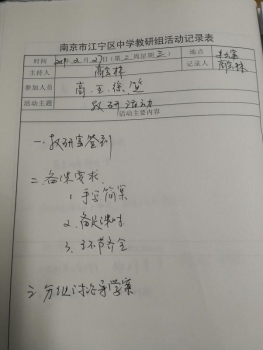 南京市江宁区中学教研组活动记录表
时间 2月27日(第三周星期三) 地点
主持人 记录人
参加人员 商、王、徐、
活动主题 教研活动
活动主要内容
一、教研室签到
二、备课要求
1. 手写简案
2. 备足课时
3. 环节齐全
三、分组讨论导学案